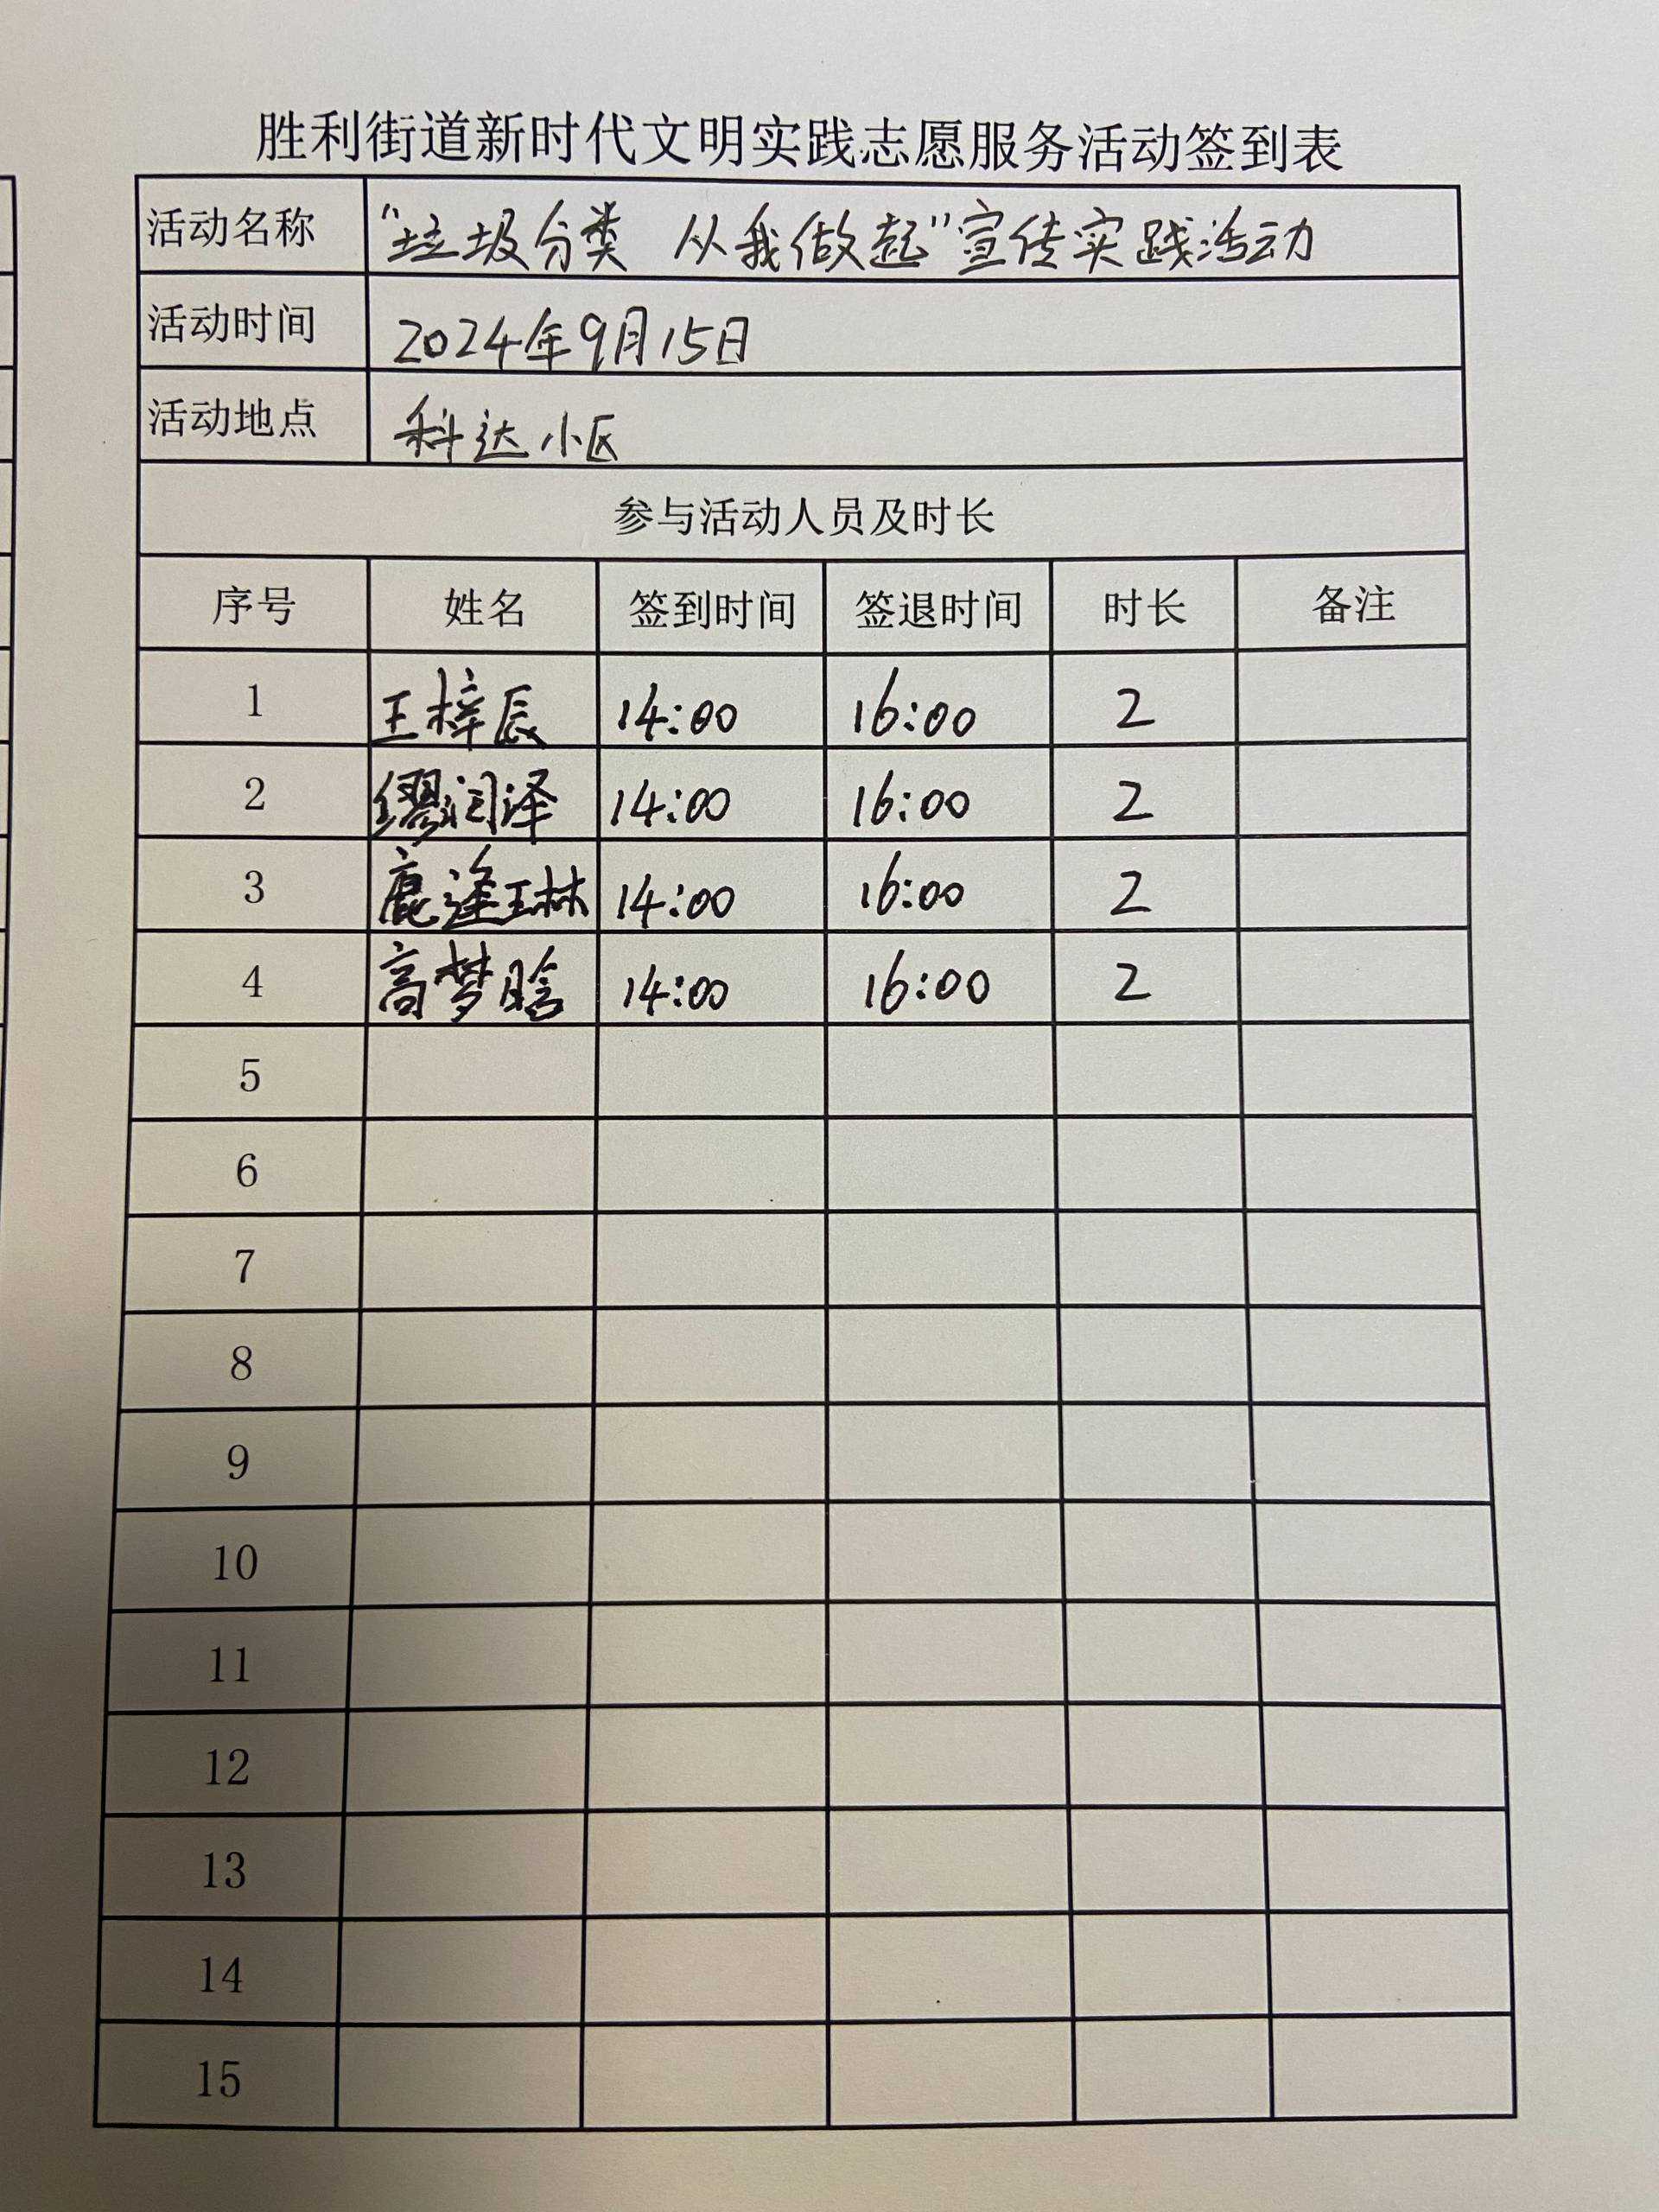 胜利街道新时代文明实践志愿服务活动签到表
活动名称 “垃圾分类 从我做起”宣传实践活动
活动时间 2024年9月15日
活动地点 科达小区
参与活动人员及时长
序号 姓名 签到时间 签退时间 时长 备注
1 王梓辰 14:00 16:00 2
2 缪润泽 14:00 16:00 2
3 鹿逢琳 14:00 16:00 2
4 高梦晗 14:00 16:00 2
5
6
7
8
9
10
11
12
13
14
15